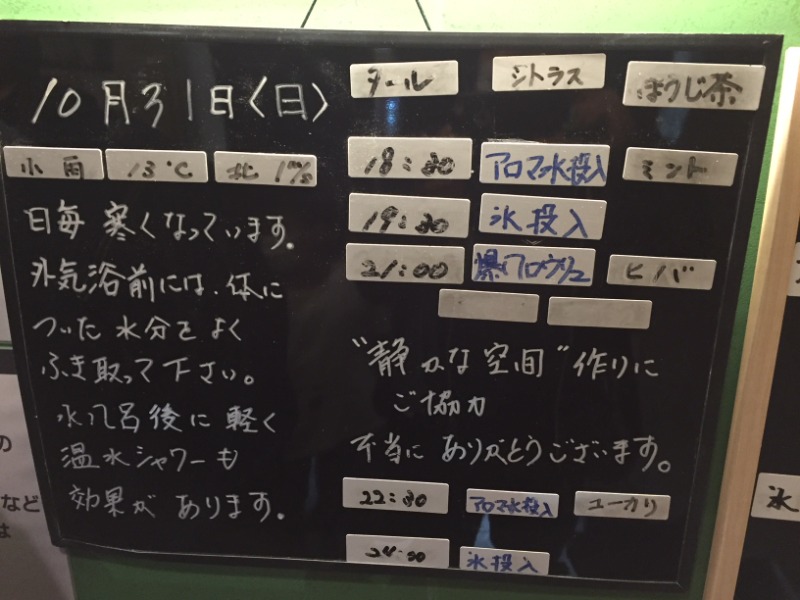 10月31日〈日〉
小雨 13℃ 北 1m/s
日毎 寒くなっています。
外気浴前には、体に
ついた水分をよく
ふき取って下さい。
水風呂後に軽く
温水シャワーも
効果が あります。
シトラス ほうじ茶
18:30 アロマ氷投入 ミント
19:30 氷投入
21:00 爆アロウリュ ヒバ
“静かな空間”作りに
ご協力
本当に ありがとうございます。
22:30 アロマ氷投入 ユーカリ
氷投入
氷
の
など
は